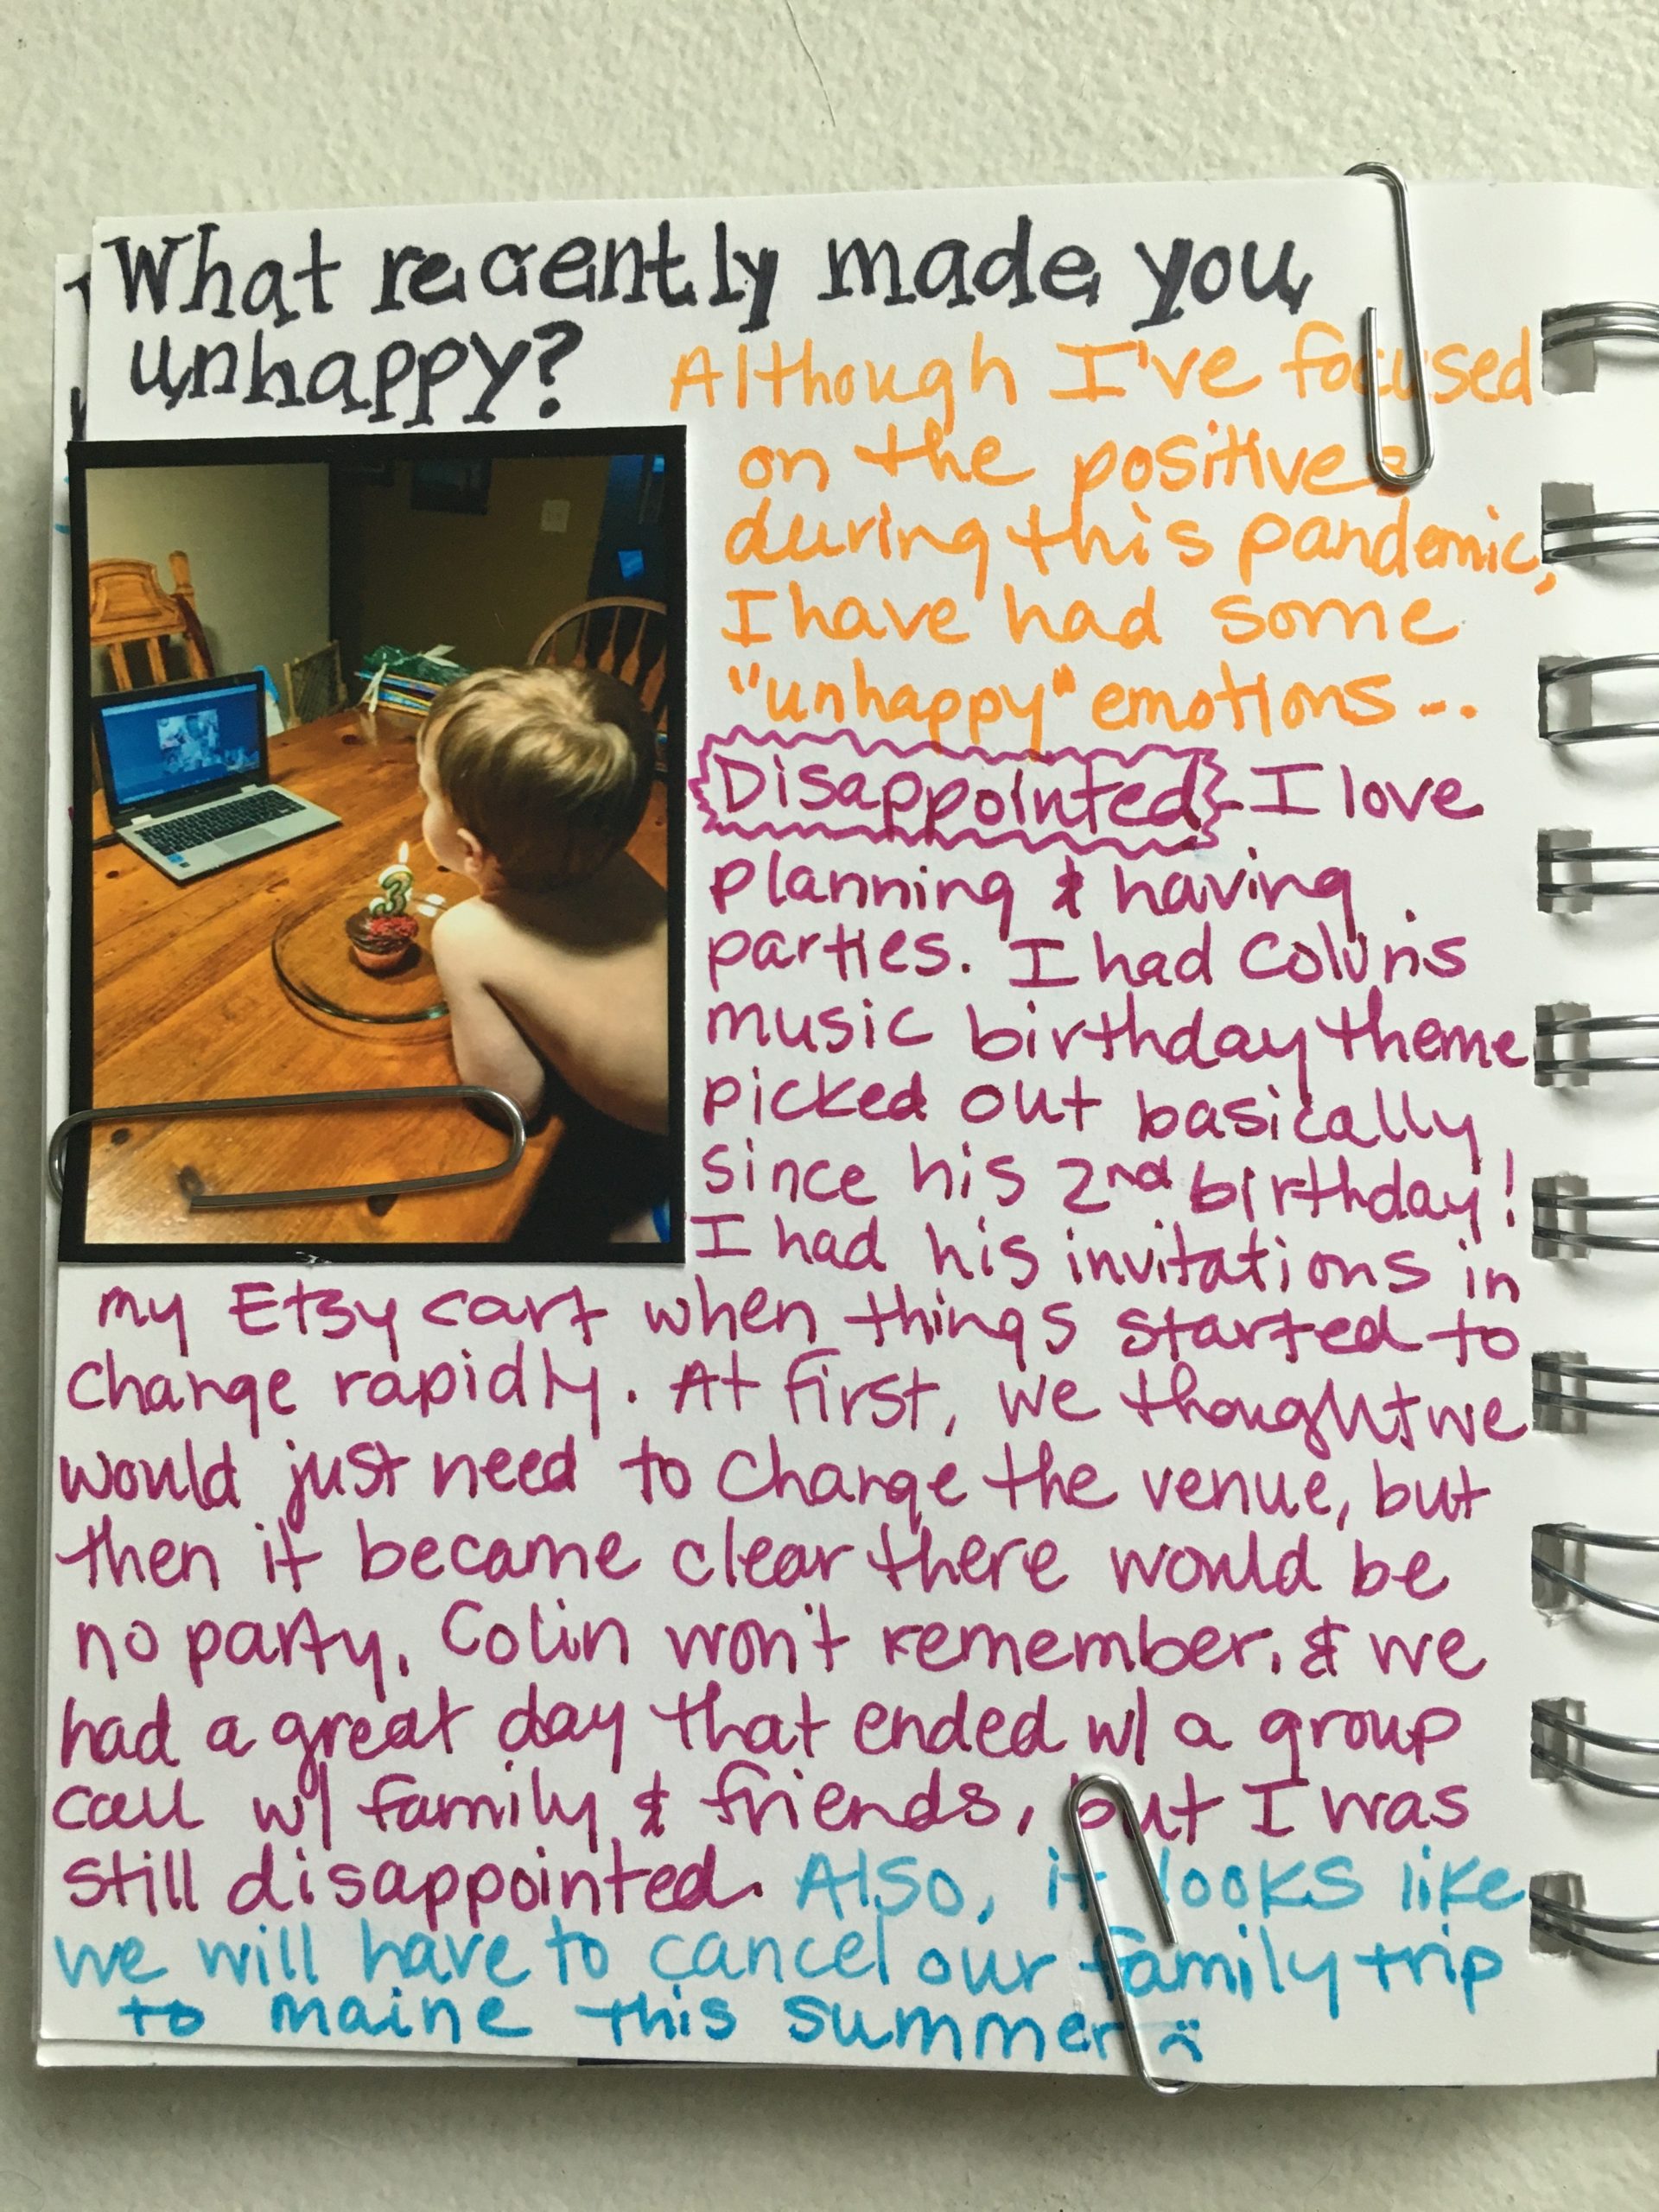 What recently made you
unhappy?
Although I've focused
on the positives
during this pandemic,
I have had some
"unhappy" emotions...
Disappointed - I love
planning & having
parties. I had Colin's
music birthday theme
picked out basically
since his 2nd birthday!
I had his invitations in
my Etsy cart when things started to
change rapidly. At first, we thought we
would just need to change the venue, but
then it became clear there would be
no party. Colin won't remember, & we
had a great day that ended w/ a group
call w/ family & friends, but I was
still disappointed. Also, it looks like
we will have to cancel our family trip
to Maine this summer :(
3